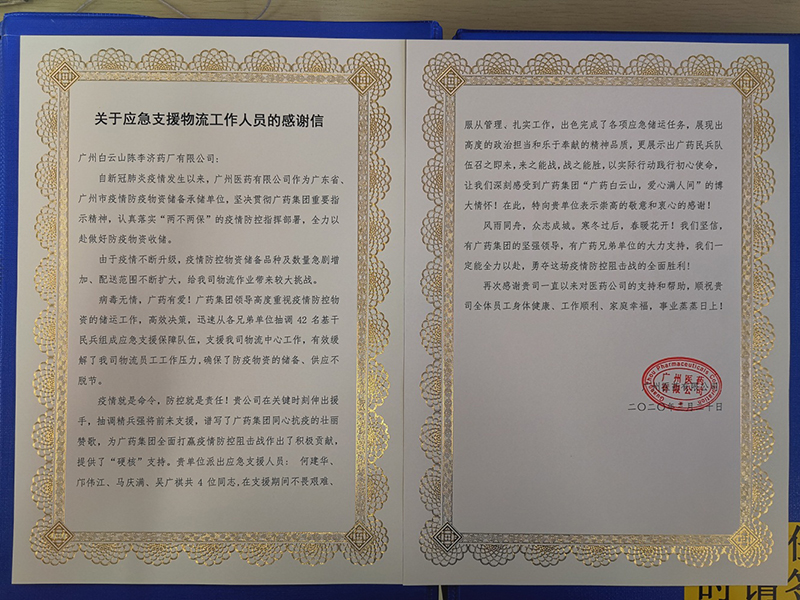 关于应急支援物流工作人员的感谢信
广州白云山陈李济药厂有限公司：
自新冠肺炎疫情发生以来，广州医药有限公司作为广东省、
广州市疫情防控物资储备承储单位，坚决贯彻广药集团重要指
示精神，认真落实“两不两保”的疫情防控指挥部署，全力以
赴做好防疫物资收储。
由于疫情不断升级，疫情防控物资储备品种及数量急剧增
加、配送范围不断扩大，给我司物流作业带来较大挑战。
病毒无情，广药有爱！广药集团领导高度重视疫情防控物
资的储运工作，高效决策，迅速从各兄弟单位抽调 42 名基干
民兵组成应急支援保障队伍，支援我司物流中心工作，有效缓
解了我司物流员工工作压力，确保了防疫物资的储备、供应不
脱节。
疫情就是命令，防控就是责任！贵公司在关键时刻伸出援
手，抽调精兵强将前来支援，谱写了广药集团同心抗疫的壮丽
赞歌，为广药集团全面打赢疫情防控阻击战作出了积极贡献，
提供了“硬核”支持。贵单位派出应急支援人员： 何建华、
邝伟江、马庆满、吴广棋共 4 位同志，在支援期间不畏艰难、
服从管理、扎实工作，出色完成了各项应急储运任务，展现出
高度的政治担当和乐于奉献的精神品质，更展示出广药民兵队
伍召之即来，来之能战，战之能胜，以实际行动践行初心使命，
让我们深刻感受到广药集团“广药白云山，爱心满人间”的博
大情怀！在此，特向贵单位表示崇高的敬意和衷心的感谢！
风雨同舟，众志成城。寒冬过后，春暖花开！我们坚信，
有广药集团的坚强领导，有广药兄弟单位的大力支持，我们一
定能全力以赴，勇夺这场疫情防控阻击战的全面胜利！
再次感谢贵司一直以来对医药公司的支持和帮助，顺祝贵
司全体员工身体健康、工作顺利、家庭幸福，事业蒸蒸日上！
Guangzhou Pharmaceuticals Corporation
广州医药
有限公司
二〇二〇年 月 十日